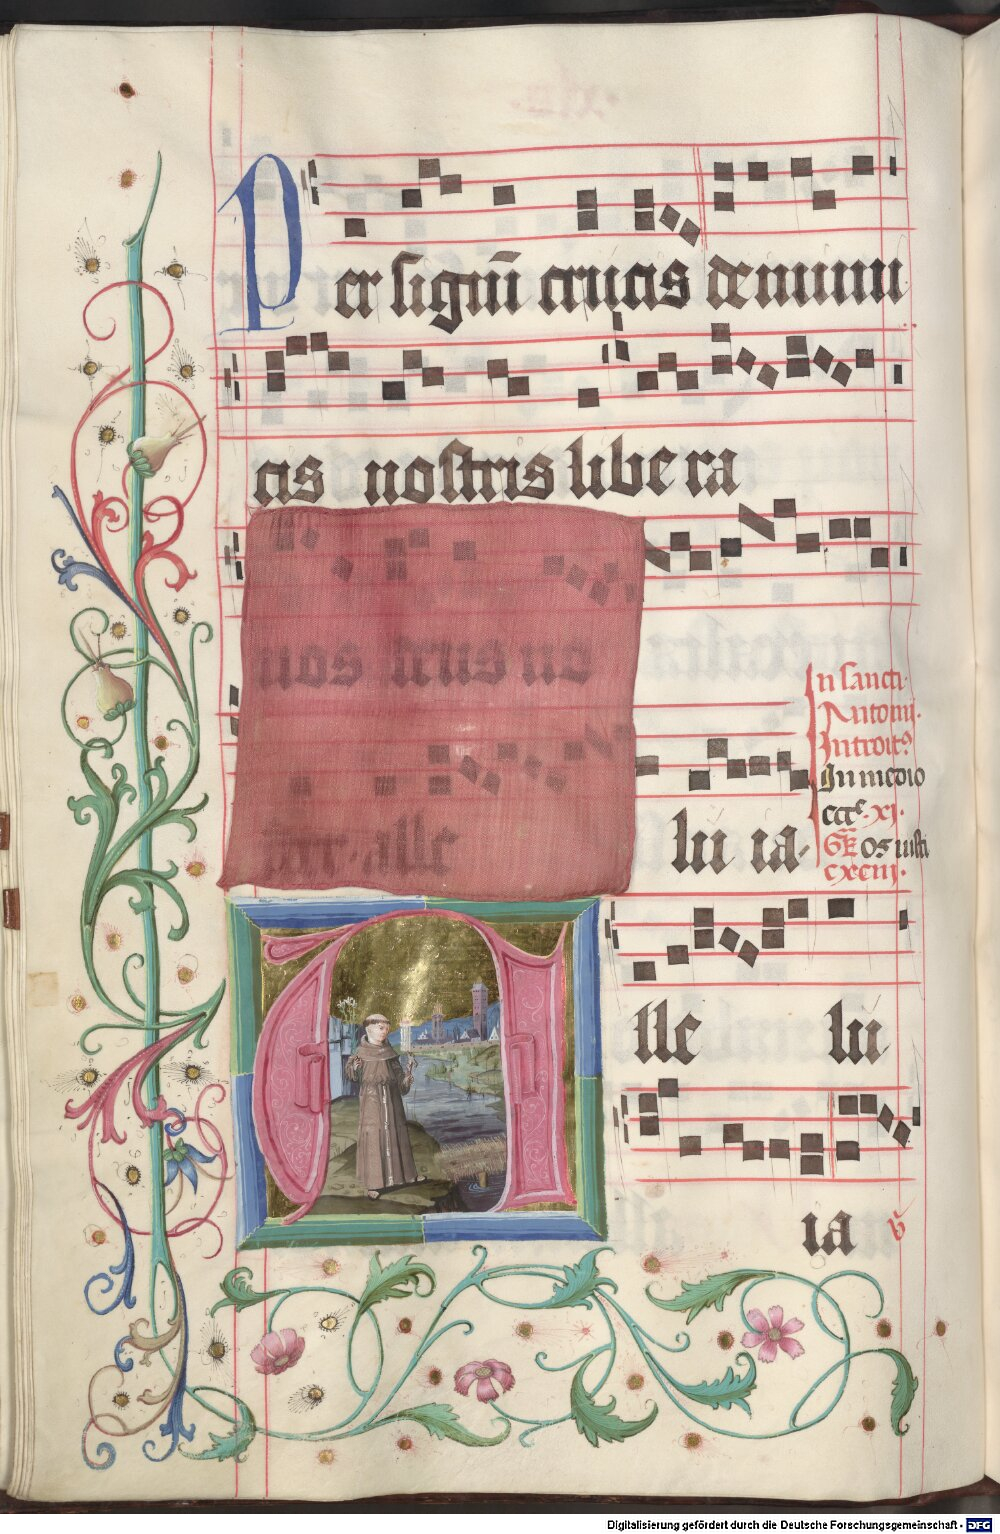 Per signū crucis de inimi
cis nostris libera
nos deus no
ster. alle lu ia.
In sancti
Antonii.
Introit⁹
In medio
ecc̄e. xi.
Gr̄ Os iusti
cxciii.
Alle lu
ia v
Digitalisierung gefördert durch die Deutsche Forschungsgemeinschaft - DFG